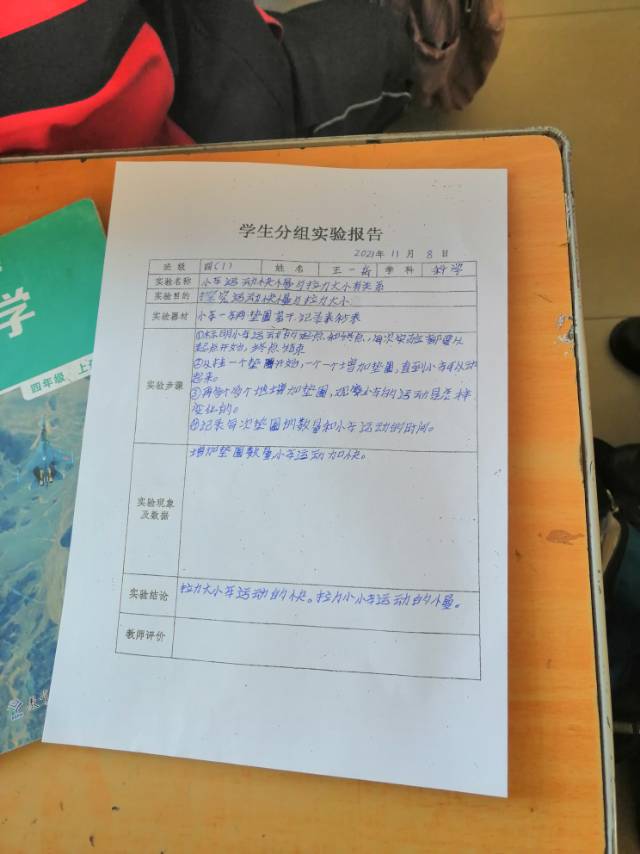 学生分组实验报告
2021年 11 月 8 日
班级 四(1) 姓名 王一 学科 科学
实验名称 小车运动快慢与拉力大小有关系
实验目的 探究运动快慢与拉力大小
实验器材 小车一车两垫圈若干,记录表秒表
实验步骤
①标明小车运动的起点和终点,每次实验都要从
起点开始,终点结束
②从挂一个垫圈开始,一个一个增加垫圈,直到小车可以动
起来。
③再每个两个地增加垫圈,观察小车的运动是怎样
变化的。
④记录每次垫圈的数量和小车运动的时间。
实验现象
及数据
增加垫圈数量小车运动加快。
实验结论 拉力大小车运动的快。拉力小小车运动的慢。
教师评价
学
四年级 上